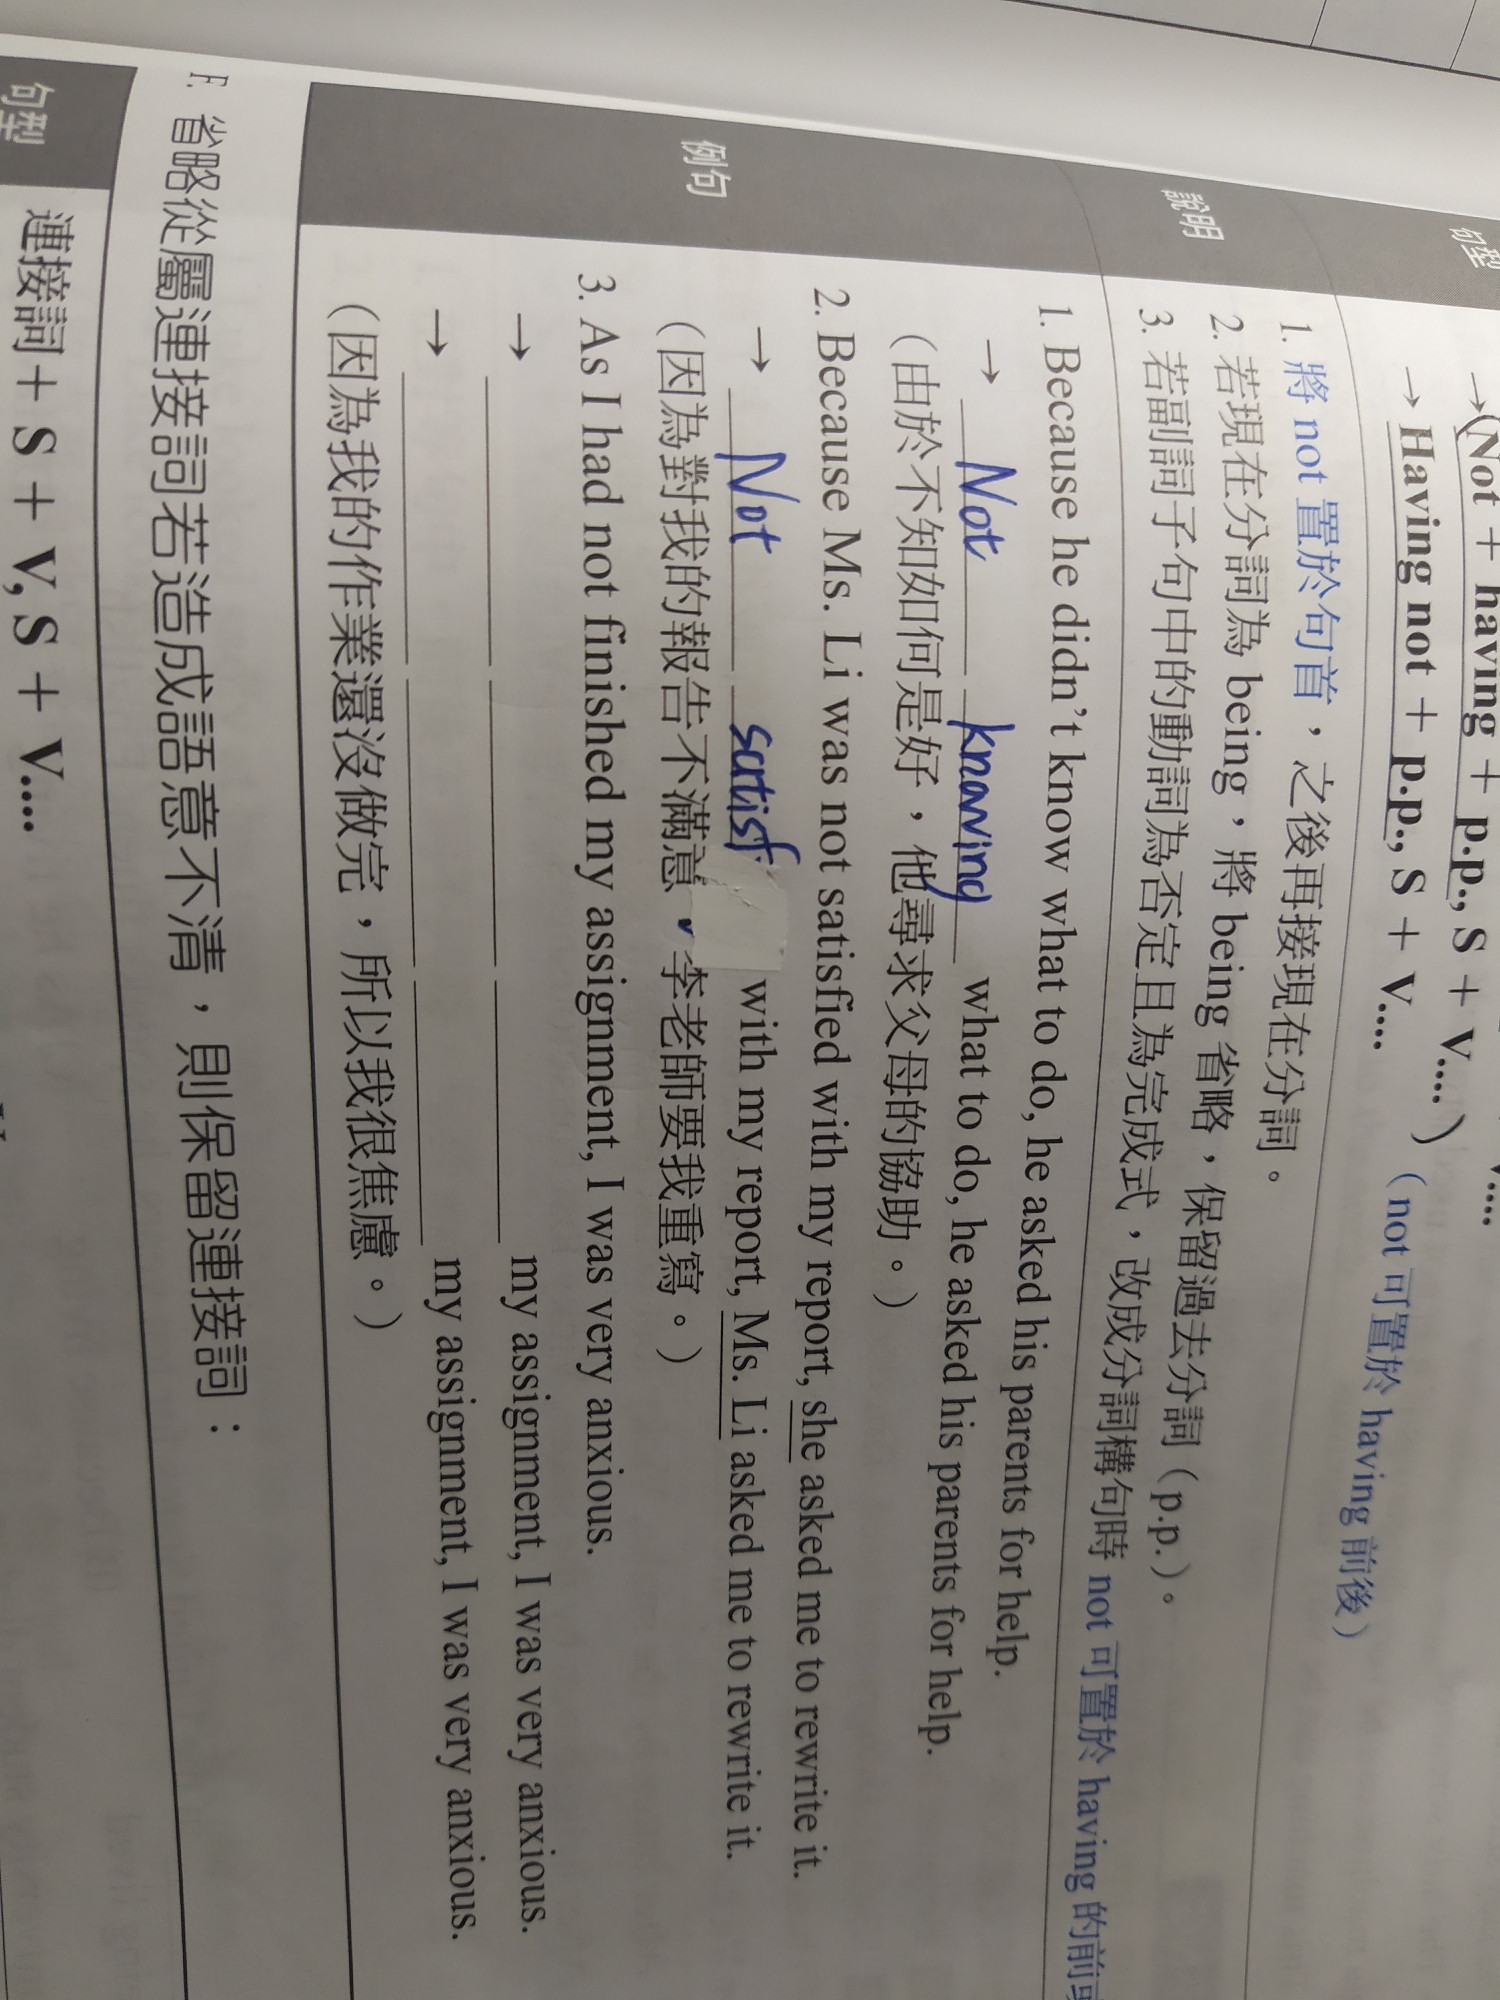 V....
→(Not + having + p.p., S + V....)
→ Having not + p.p., S + V.... (not 可置於 having 前後)
句型
說明
1. 將 not 置於句首，之後再接現在分詞。
2. 若現在分詞為 being，將 being 省略，保留過去分詞（p.p.）。
3. 若副詞子句中的動詞為否定且為完成式，改成分詞構句時 not 可置於 having 的前
例句
1. Because he didn't know what to do, he asked his parents for help.
→ Not knowing what to do, he asked his parents for help.
（由於不知如何是好，他尋求父母的協助。）
2. Because Ms. Li was not satisfied with my report, she asked me to rewrite it.
→ Not satisf with my report, Ms. Li asked me to rewrite it.
（因為對我的報告不滿意，李老師要我重寫。）
3. As I had not finished my assignment, I was very anxious.
→ my assignment, I was very anxious.
→ my assignment, I was very anxious.
（因為我的作業還沒做完，所以我很焦慮。）
F. 省略從屬連接詞若造成語意不清，則保留連接詞：
句型
連接詞 + S + V, S + V....